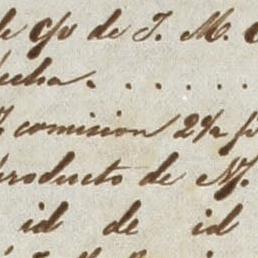 c/o de J. M.
fecha . . . . . .
comision 2½
producto de N.
id de id